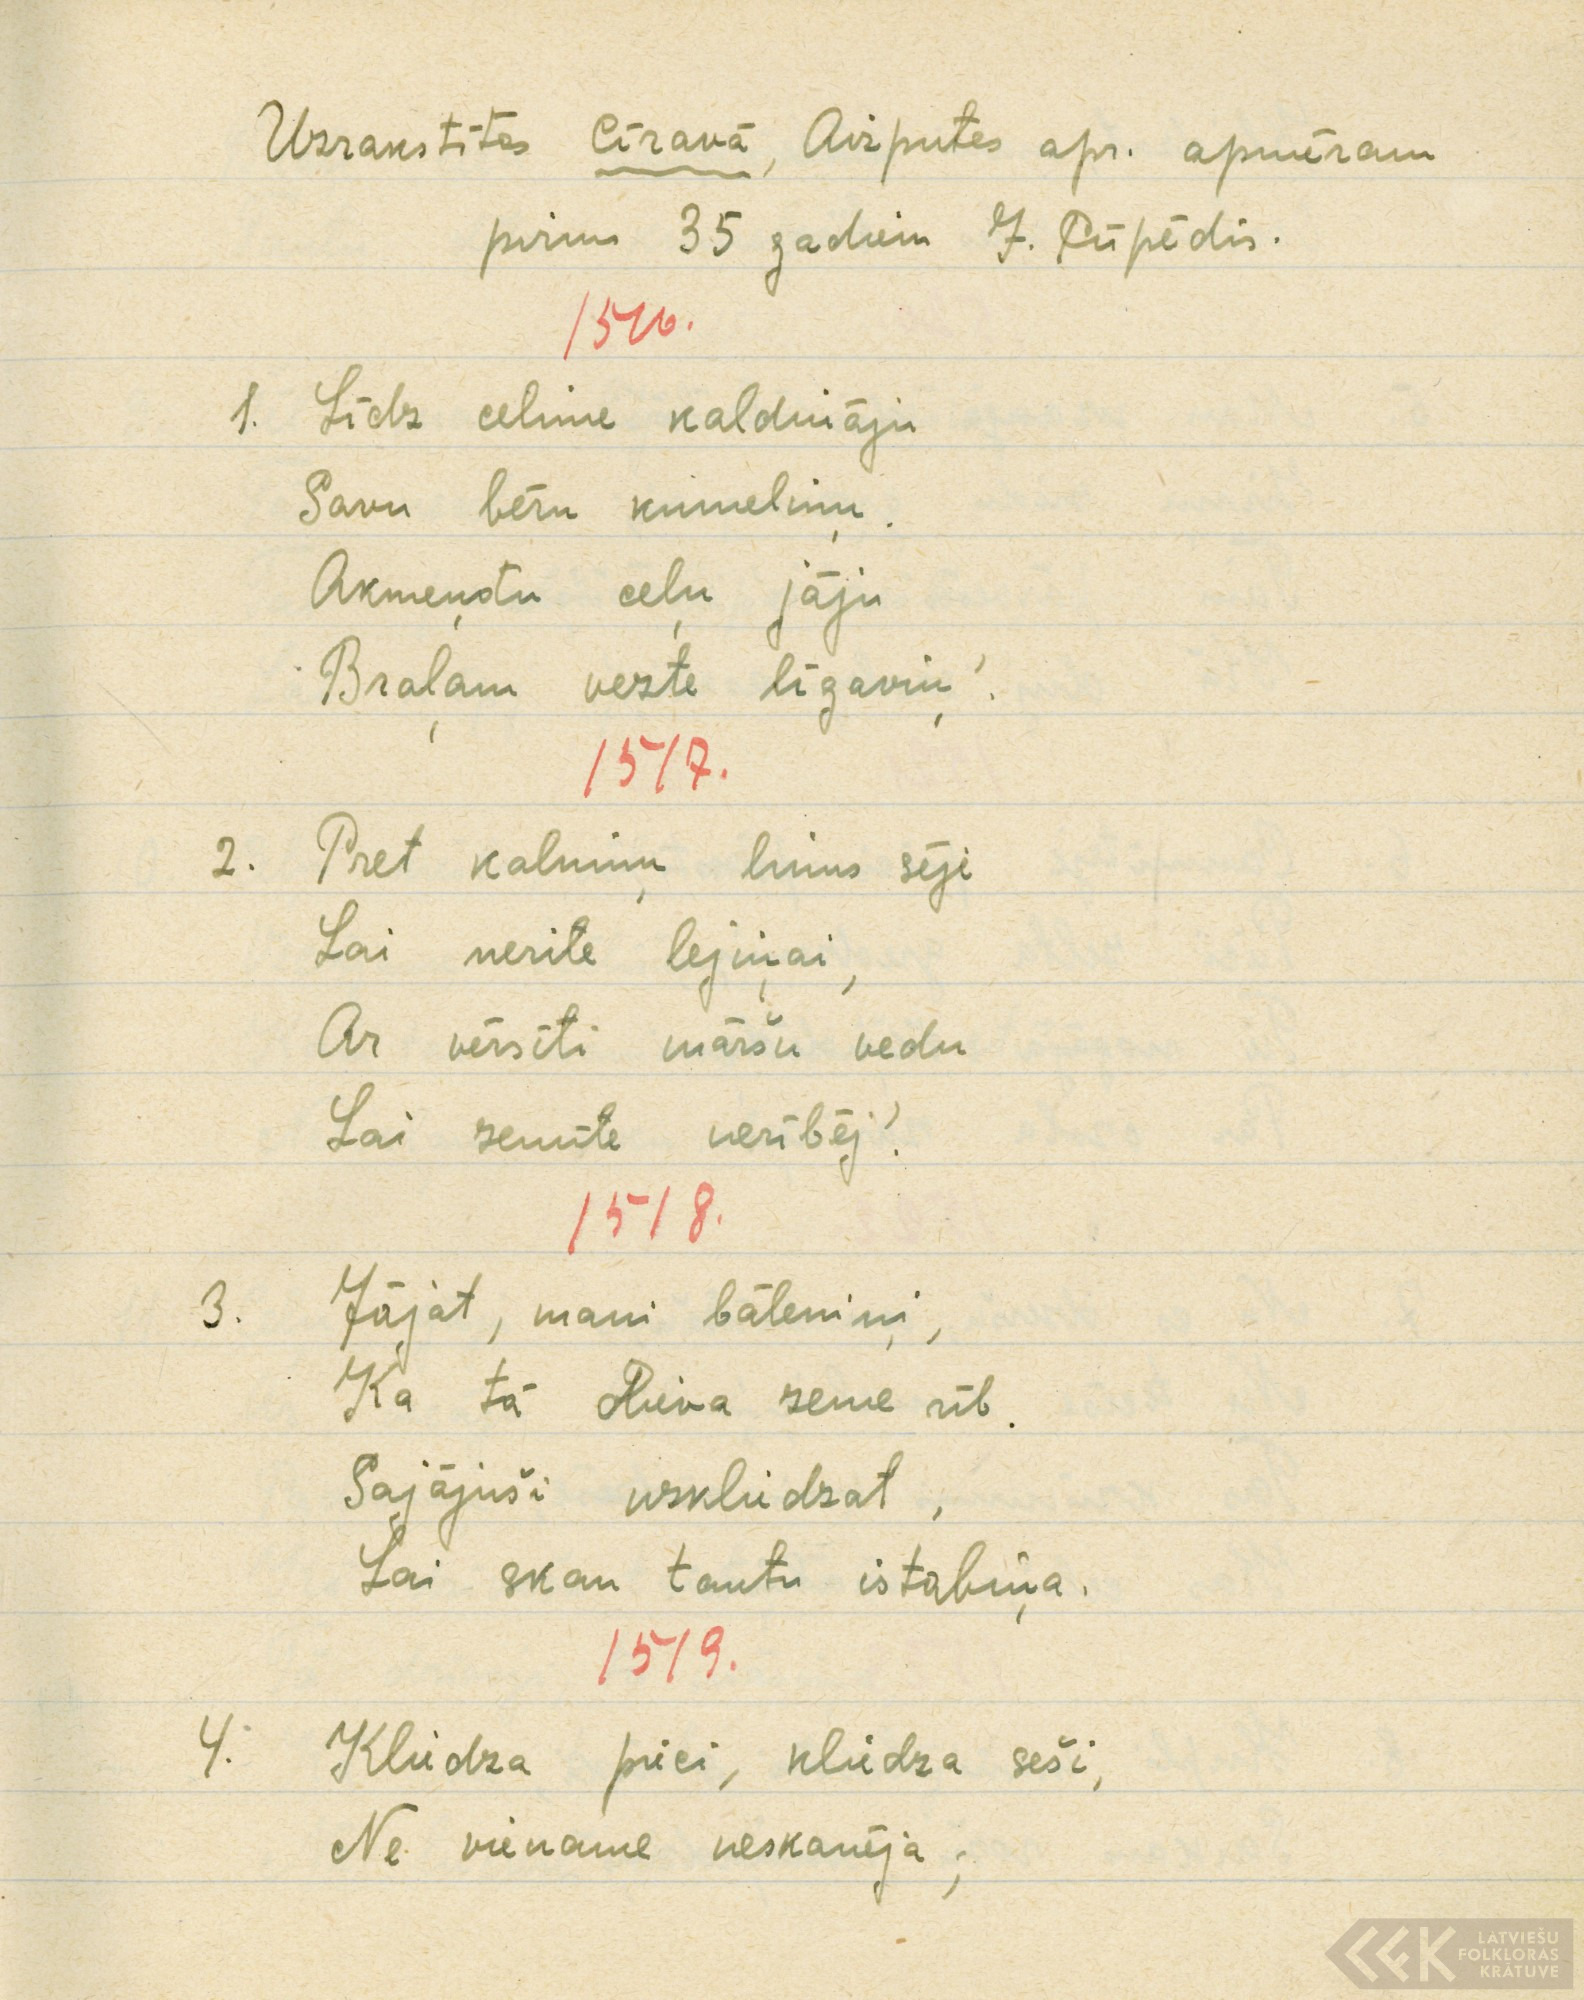 Uzrakstītas Cīravā, Aizputes apr. apmēram
pirms 35 gadiem J. Rūpēdis.
1516.
1. Līdz celime kaldināju
Savu bēru kumeliņu.
Akmeņotu ceļu jāju
Braļam vezte līgaviņ'.
1517.
2. Pret kalniņu linus sēji
Lai nerite lejiņai,
Ar vērsīti māršu vedu
Lai zemīte nerībēj'.
1518.
3. Jājat, mani bāleniņi,
Ka tā Dieva zeme rīb.
Sajājuši uzkliedzat,
Lai skan tautu istabiņa.
1519.
4. Kliedza pieci, kliedza seši,
Ne viename neskanēja;
LATVIEŠU
FOLKLORAS
KRĀTUVE